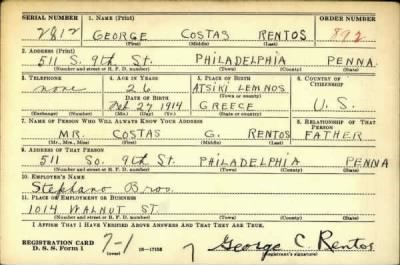 SERIAL NUMBER 1. NAME (Print) ORDER NUMBER
2812 GEORGE COSTAS RENTOS 892
(First) (Middle) (Last)
2. ADDRESS (Print)
511 S. 9th ST. PHILADELPHIA PENNA.
(Number and street or R. F. D. number) (Town) (County) (State)
3. TELEPHONE 4. AGE IN YEARS 5. PLACE OF BIRTH 6. COUNTRY OF CITIZENSHIP
none 26 ATSIKI LEMNOS
DATE OF BIRTH (Town or county)
Feb 27 1914 GREECE U.S.
(Exchange) (Number) (Mo.) (Day) (Yr.) (State or country)
7. NAME OF PERSON WHO WILL ALWAYS KNOW YOUR ADDRESS 8. RELATIONSHIP OF THAT PERSON
MR. COSTAS G. RENTOS FATHER
(Mr., Mrs., Miss) (First) (Middle) (Last)
9. ADDRESS OF THAT PERSON
511 So. 9th St. PHILADELPHIA PENNA
(Number and street or R. F. D. number) (Town) (County) (State)
10. EMPLOYER'S NAME
Stephano Bros.
11. PLACE OF EMPLOYMENT OR BUSINESS
1014 WALNUT ST.
(Number and street or R. F. D. number) (Town) (County) (State)
I AFFIRM THAT I HAVE VERIFIED ABOVE ANSWERS AND THAT THEY ARE TRUE.
REGISTRATION CARD
D. S. S. Form 1 7-1 (over) 16—17105 7 George C. Rentos
(Registrant's signature)